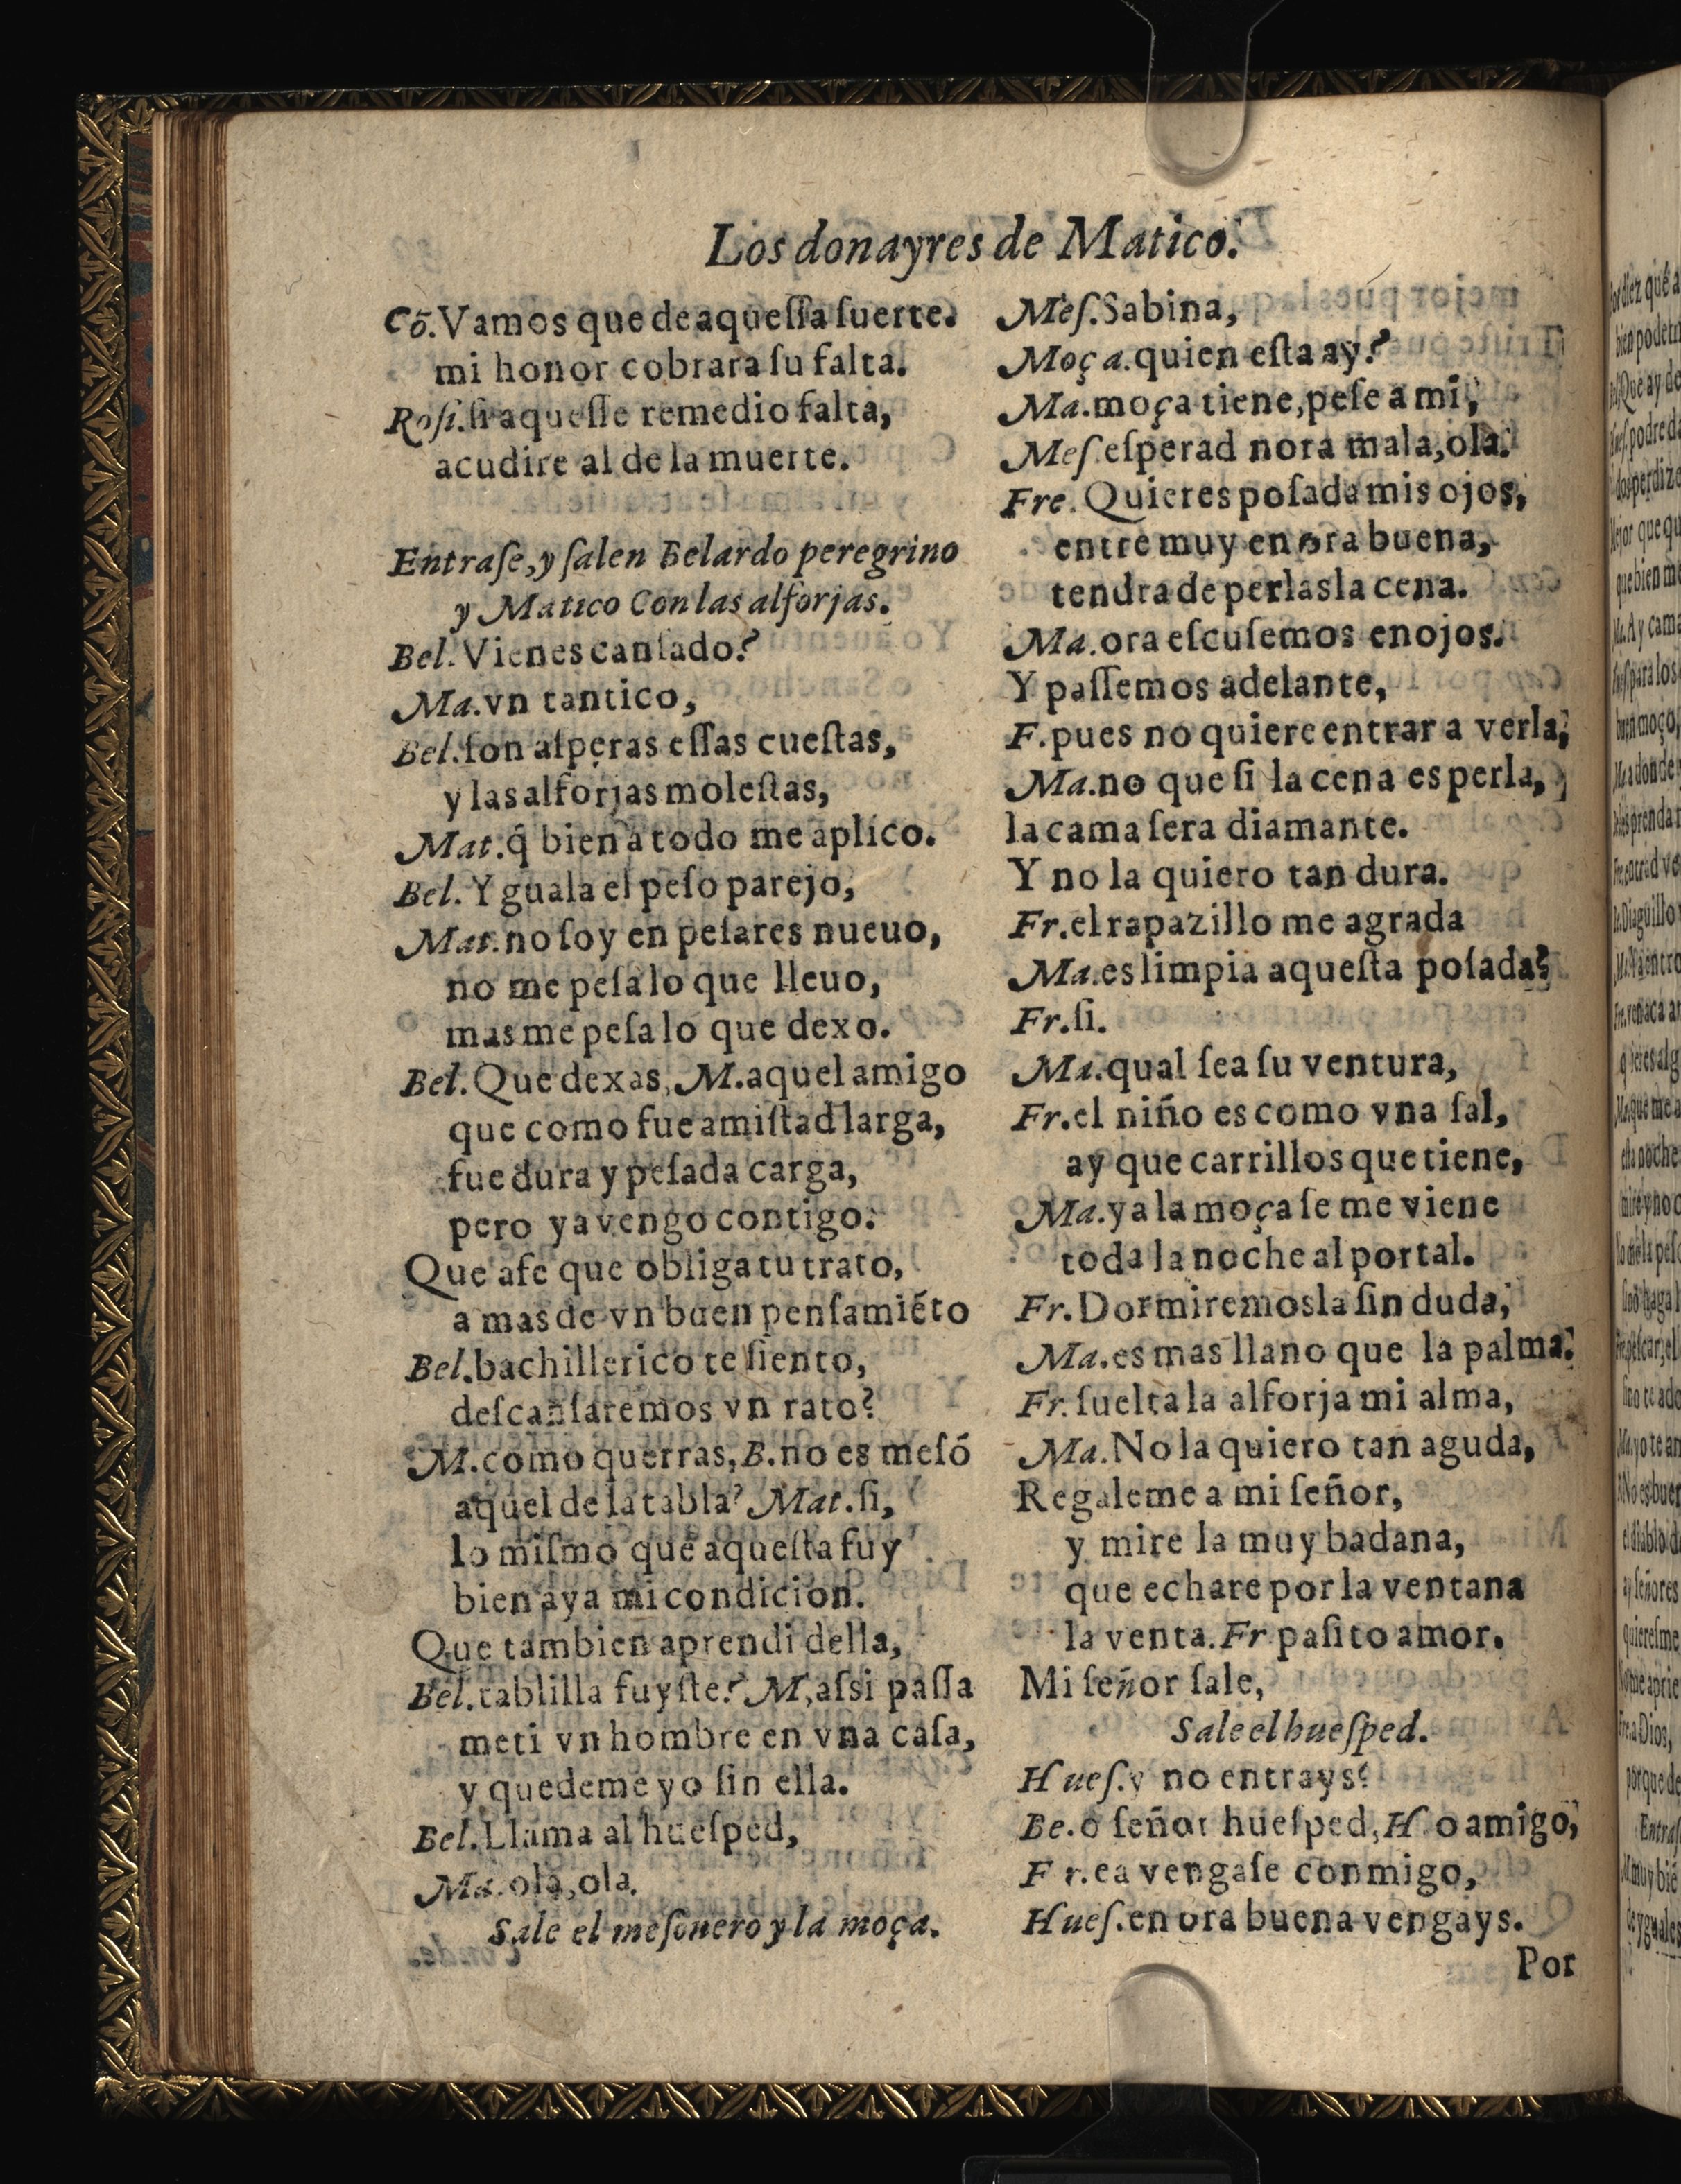 Los donayres de Matico.
Cō. Vamos que de aqueſſa ſuerte.
mi honor cobrara ſu falta.
Roſi. ſi aqueſſe remedio falta,
acudire al de la muerte.
Entraſe, y ſalen Belardo peregrino
y Matico Con las alforjas.
Bel. Vienes canſado?
Ma. vn tantico,
Bel. ſon aſperas eſſas cueſtas,
y las alforjas moleſtas,
Mat. q̃ bien a todo me aplico.
Bel. Y guala el peſo parejo,
Mat. no ſoy en peſares nueuo,
no me peſa lo que lleuo,
mas me peſa lo que dexo.
Bel. Que dexas, M. aquel amigo
que como fue amiſtad larga,
fue dura y peſada carga,
pero ya vengo contigo.
Que afe que obliga tu trato,
a mas de vn buen penſamiéto
Bel. bachillerico te ſiento,
deſcanſaremos vn rato?
M. como querras, B. no es meſó
aquel de la tabla? Mat. ſi,
lo miſmo que aqueſta fuy
bien aya mi condicion.
Que tambien aprendi della,
Bel. tablilla fuyſte? M, aſsi paſſa
meti vn hombre en vna caſa,
y quedeme yo ſin ella.
Bel. Llama al hueſped,
Ma. ola, ola.
Sale el meſonero y la moça.
Meſ. Sabina,
Moça. quien eſta ay?
Ma. moça tiene, peſe a mi,
Meſ. eſperad nora mala, ola.
Fre. Quieres poſada mis ojos,
entre muy en ora buena,
tendra de perlas la cena.
Ma. ora eſcuſemos enojos.
Y paſſemos adelante,
F. pues no quiere entrar a verla,
Ma. no que ſi la cena es perla,
la cama ſera diamante.
Y no la quiero tan dura.
Fr. el rapazillo me agrada
Ma. es limpia aqueſta poſada?
Fr. ſi.
Ma. qual ſea ſu ventura,
Fr. el niño es como vna ſal,
ay que carrillos que tiene,
Ma. ya la moça ſe me viene
toda la noche al portal.
Fr. Dormiremosla ſin duda,
Ma. es mas llano que la palma.
Fr. ſuelta la alforja mi alma,
Ma. No la quiero tan aguda,
Regaleme a mi ſeñor,
y mire la muy badana,
que echare por la ventana
la venta. Fr paſito amor.
Mi ſeñor ſale,
Sale el hueſped.
Hueſ. y no entrays?
Be. o ſeñor hueſped, H. o amigo,
Fr. ea vengaſe conmigo,
Hueſ. en ora buena vengays.
Por